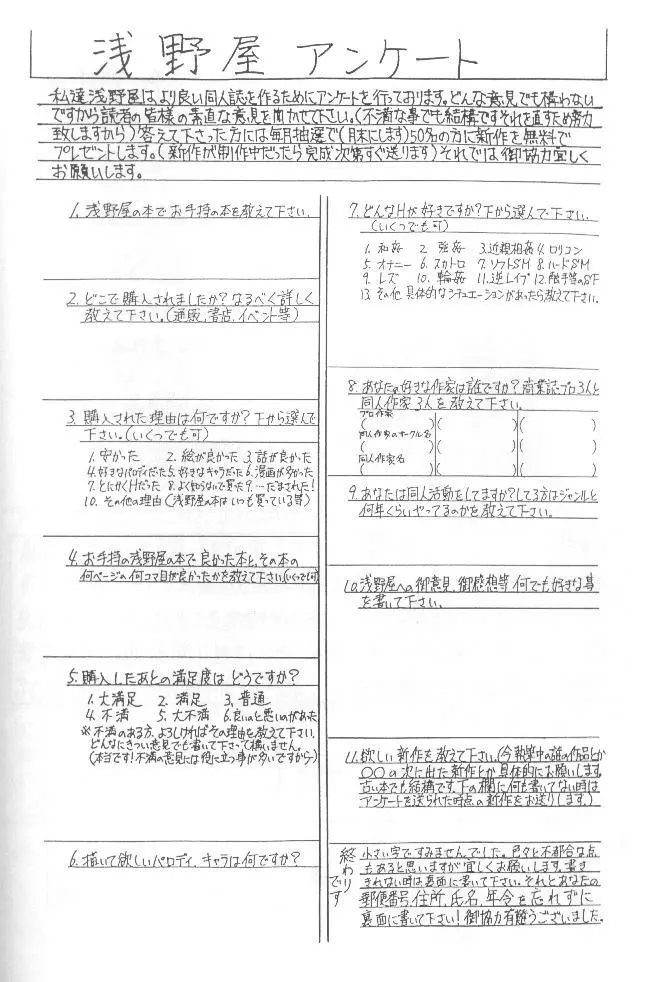 浅野屋 アンケート
私達浅野屋は、より良い同人誌を作るためにアンケートを行っております。どんな意見でも構わない
ですから読者の皆様の素直な意見を聞かせて下さい。(不満な事でも結構ですそれを直すため努力
致しますから)答えて下さった方には毎月抽選で(月末にします)50名の方に新作を無料で
プレゼントします。(新作が制作中だったら完成次第すぐ送ります)それでは、御協力宜しく
お願いします。
1. 浅野屋の本でお手持の本を教えて下さい。
2. どこで購入されましたか?なるべく詳しく
教えて下さい。(通販、書店、イベント等)
3. 購入された理由は何ですか?下から選んで
下さい。(いくつでも可)
1. 安かった 2. 絵が良かった 3. 話が良かった
4. 好きなパロディだった 5. 好きなキャラだった 6. 漫画が多かった
7. とにかくHだった 8. よく知らないで買った 9. …だまされた!
10. その他の理由(浅野屋の本はいつも買っている等)
4. お手持の浅野屋の本で良かった本と、その本の
何ページの何コマ目が良かったかを教えて下さい(いくつでも可)
5. 購入したあとの満足度はどうですか?
1. 大満足 2. 満足 3. 普通
4. 不満 5. 大不満 6. 良いのと悪いのがあった
※不満のある方、よろしければその理由を教えて下さい。
どんなにきつい意見でも書いて下さって構いません。
(本当です!不満の意見には役に立つ事が多いですから)
6. 描いて欲しいパロディ、キャラは何ですか?
7. どんなHが好きですか?下から選んで下さい。
(いくつでも可)
1. 和姦 2. 強姦 3. 近親相姦 4. ロリコン
5. オナニー 6. スカトロ 7. ソフトSM 8. ハードSM
9. レズ 10. 輪姦 11. 逆レイプ 12. 触手等のSF
13. その他 具体的なシチュエーションがあったら教えて下さい。
8. あなたの好きな作家は誰ですか?商業誌・プロ3人と
同人作家3人を教えて下さい。
プロ作家
( )( )( )
同人作家のサークル名
( )( )( )
同人作家名
( )( )( )
9. あなたは同人活動をしてますか?してる方はジャンルと
何年くらいやってるのかを教えて下さい。
10. 浅野屋への御意見、御感想等 何でも好きな事
を書いて下さい。
11. 欲しい新作を教えて下さい。(今執筆中の話の作品とか
〇〇の次に出た新作とか具体的にお願いします。
古い本でも結構です。下の欄に何も書いてない時は
アンケートを送られた時点の新作をお送りします。)
終わりです
小さい字ですみませんでした。色々と不都合な点
もあると思いますが宜しくお願いします。書き
きれない時は裏面に書いて下さい。それとあなたの
郵便番号、住所、氏名、年令を忘れずに
裏面に書いて下さい!御協力有難うございました。